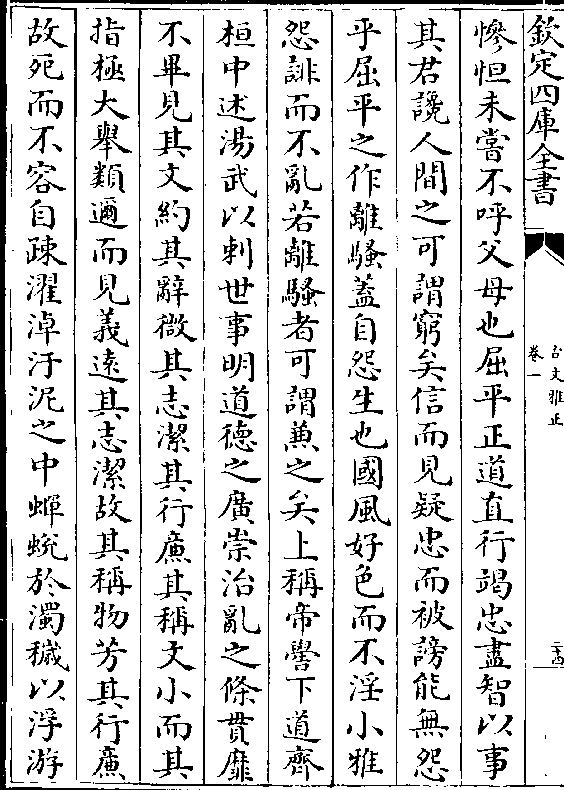 欽定四庫全書
古文雅正
卷一
二十四
慘怛未嘗不呼父母也屈平正道直行竭忠盡智以事
其君讒人間之可謂窮矣信而見疑忠而被謗能無怨
乎屈平之作離騷蓋自怨生也國風好色而不淫小雅
怨誹而不亂若離騷者可謂兼之矣上稱帝嚳下道齊
桓中述湯武以刺世事明道德之廣崇治亂之條貫靡
不畢見其文約其辭微其志潔其行廉其稱文小而其
指極大舉類邇而見義遠其志潔故其稱物芳其行廉
故死而不容自疎濯淖汙泥之中蟬蛻於濁穢以浮游